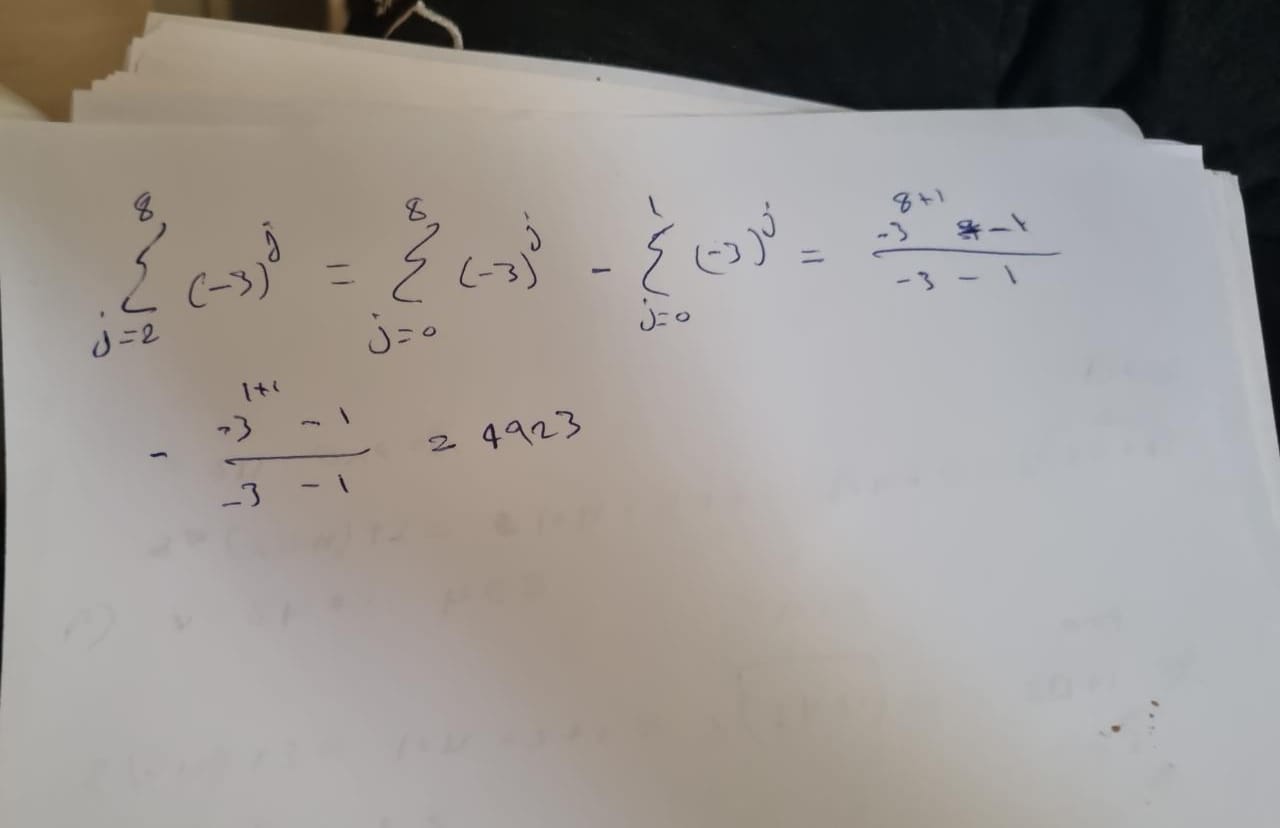 \sum_{j=2}^{8} (-3)^j = \sum_{j=0}^{8} (-3)^j - \sum_{j=0}^{1} (-3)^j = \frac{-3^{8+1} - 1}{-3 - 1}
- \frac{-3^{1+1} - 1}{-3 - 1} = 4923